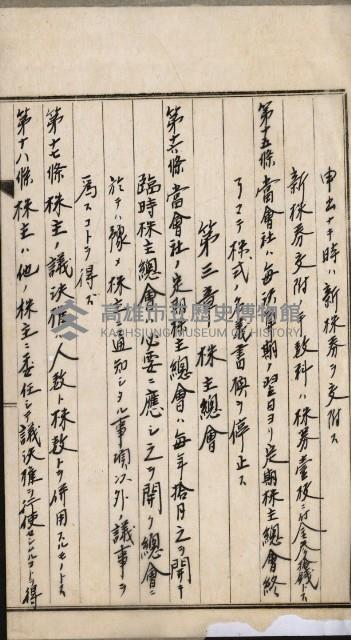 申出ナキ時ハ新株券ヲ交附ス
新株券交附手数料ハ株券壹枚ニ付金
第十五條 當會社ハ每決算期ノ翌日ヨリ定期株主總會終
了マテ株式ノ名義書換ヲ停止ス
第三章 株主總會
第十六條 當會社ノ定期株主總會ハ每年拾月之ヲ開キ
臨時株主總會ハ必要ニ應シ之ヲ開ク總會ニ
於テハ豫メ株主ニ通知シタル事項以外ノ議事ヲ
爲スコトヲ得ズ
第十七條 株主ノ議決權ハ人数ト株数トヲ併用スルモノトス
第十八條 株主ハ他ノ株主ニ委任シテ議決權ヲ行使セシムルコトヲ得
高雄市立歷史博物館
KAOHSIUNG MUSEUM OF HISTORY